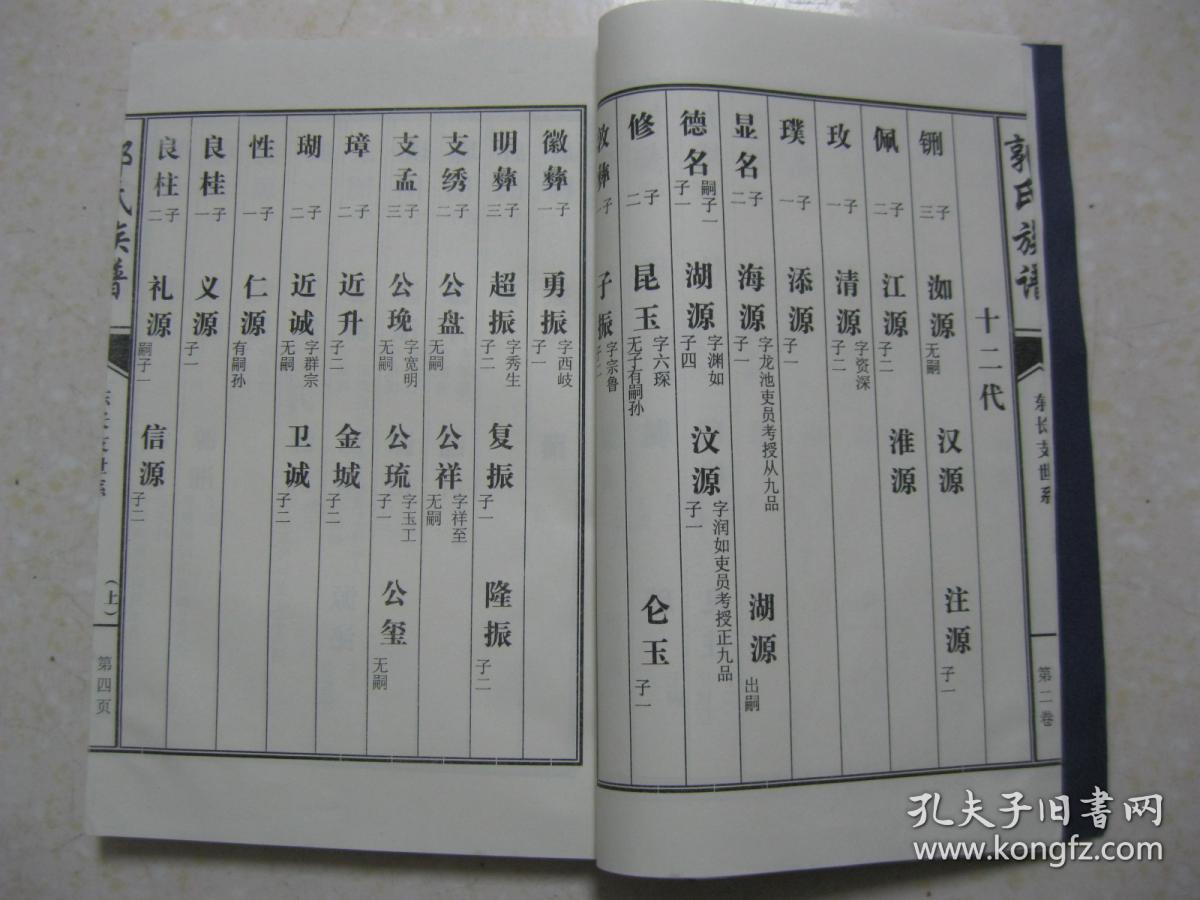 郭氏族谱
东长支世系
第二卷
十二代
铏 子三 洳源 无嗣 汉源 注源 子一
佩 子二 江源 子二 淮源
玫 子一 清源 字资深 子二
璞 子一 添源 子一
显名 子二 海源 字龙池吏员考授从九品 子一 湖源 出嗣
德名 嗣子一 子一 湖源 字渊如 子四 汶源 字润如吏员考授正九品 子一
修 子二 昆玉 字六琛 无子有嗣孙 仑玉 子一
彝 子一 子振 字宗鲁 子二
徽彝 子一 勇振 字西岐 子一
明彝 子三 超振 字秀生 子二 复振 子一 隆振 子二
支绣 子二 公盘 无嗣 公祥 字祥至 无嗣
支孟 子三 公琬 字宽明 无嗣 公琉 字玉工 子一 公玺 无嗣
璋 子二 近升 子二 金城 子二
瑚 子二 近诚 字群宗 无嗣 卫诚 子二
性 子一 仁源 有嗣孙
良桂 子一 义源 子一
良柱 子二 礼源 嗣子一 信源 子二
氏族谱
（上）
第四页
孔夫子旧书网
www.kongfz.com